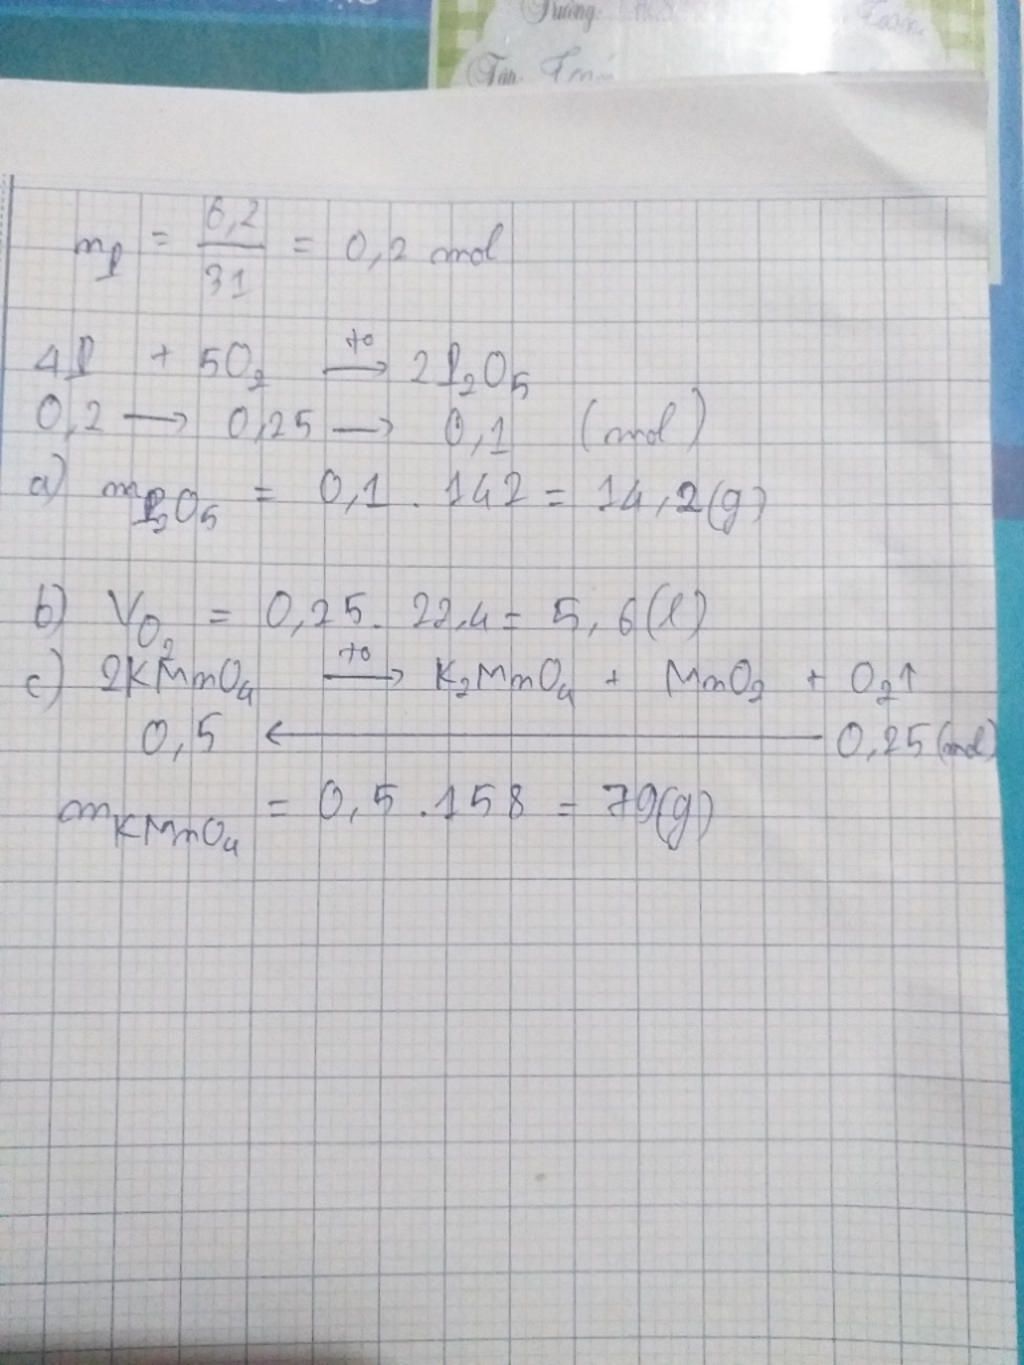 Trường:
Tên
n_P = 6,2/31 = 0,2 mol
4P + 5O₂ →(t°) 2P₂O₅
0,2 → 0,25 → 0,1 (mol)
a) m_P₂O₅ = 0,1 . 142 = 14,2(g)
b) V_O₂ = 0,25. 22,4 = 5,6(l)
c) 2KMnO₄ →(t°) K₂MnO₄ + MnO₂ + O₂↑
0,5 ← 0,25(mol)
m_KMnO₄ = 0,5 .158 = 79(g)